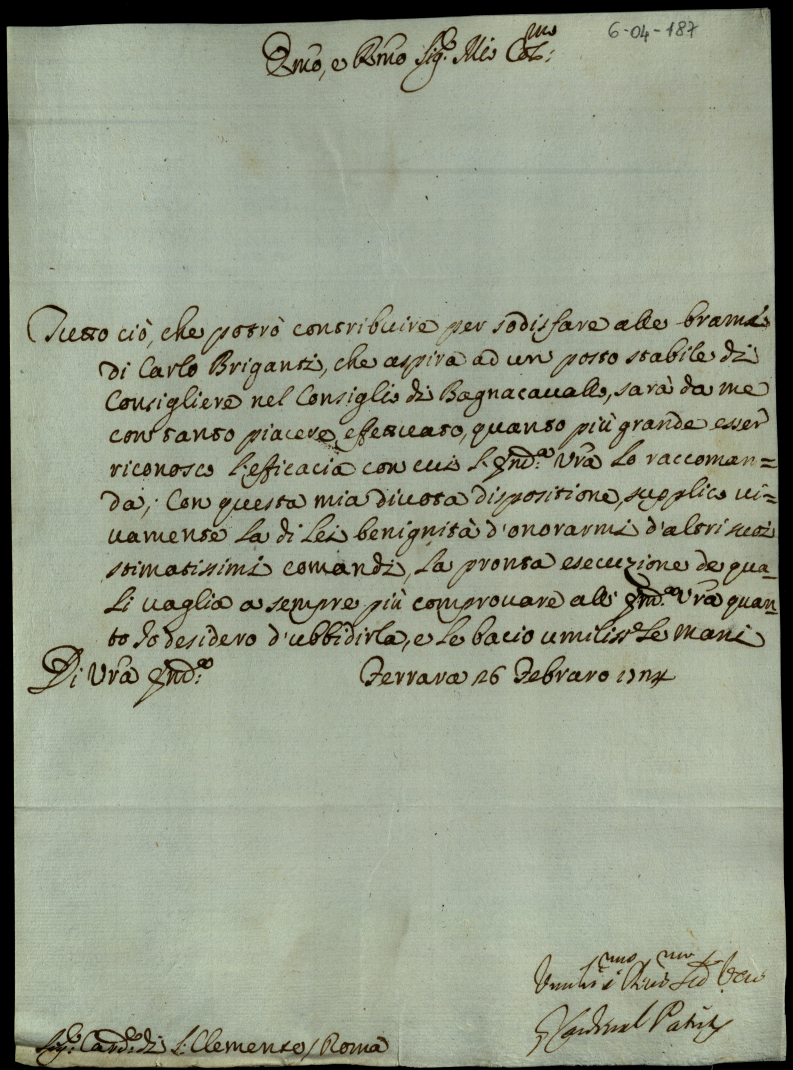 6-04-187
Emo, e Rmo Sig.r Mio Oss.mo
Tutto ciò, che potrò contribuire per sodisfare alle brame
di Carlo Briganti, che aspira ad un posto stabile di
Consigliere nel Consiglio di Bagnacauallo, sarà da me
con tanto piacere effettuato, quanto più grande esser
riconosco l'efficacia con cui l'Em.a Vra lo raccoman=
da; Con questa mia diuota dispositione, supplico ui=
uamente la di Lei benignità d'onorarmi d'altri suoi
stimatissimi comandi, la pronta esecuzione de qua=
li uaglia a sempre più comprouare all' Em.a Vra quan=
to Io desidero d'ubbidirla, e le bacio umiliss.e le mani
Di Vra Em.a
Ferrara 26 Febraro 1724
Umiliss.mo Seruo
Cardinal Patrizi
Sig.r Card.e di S. Clemente / Roma